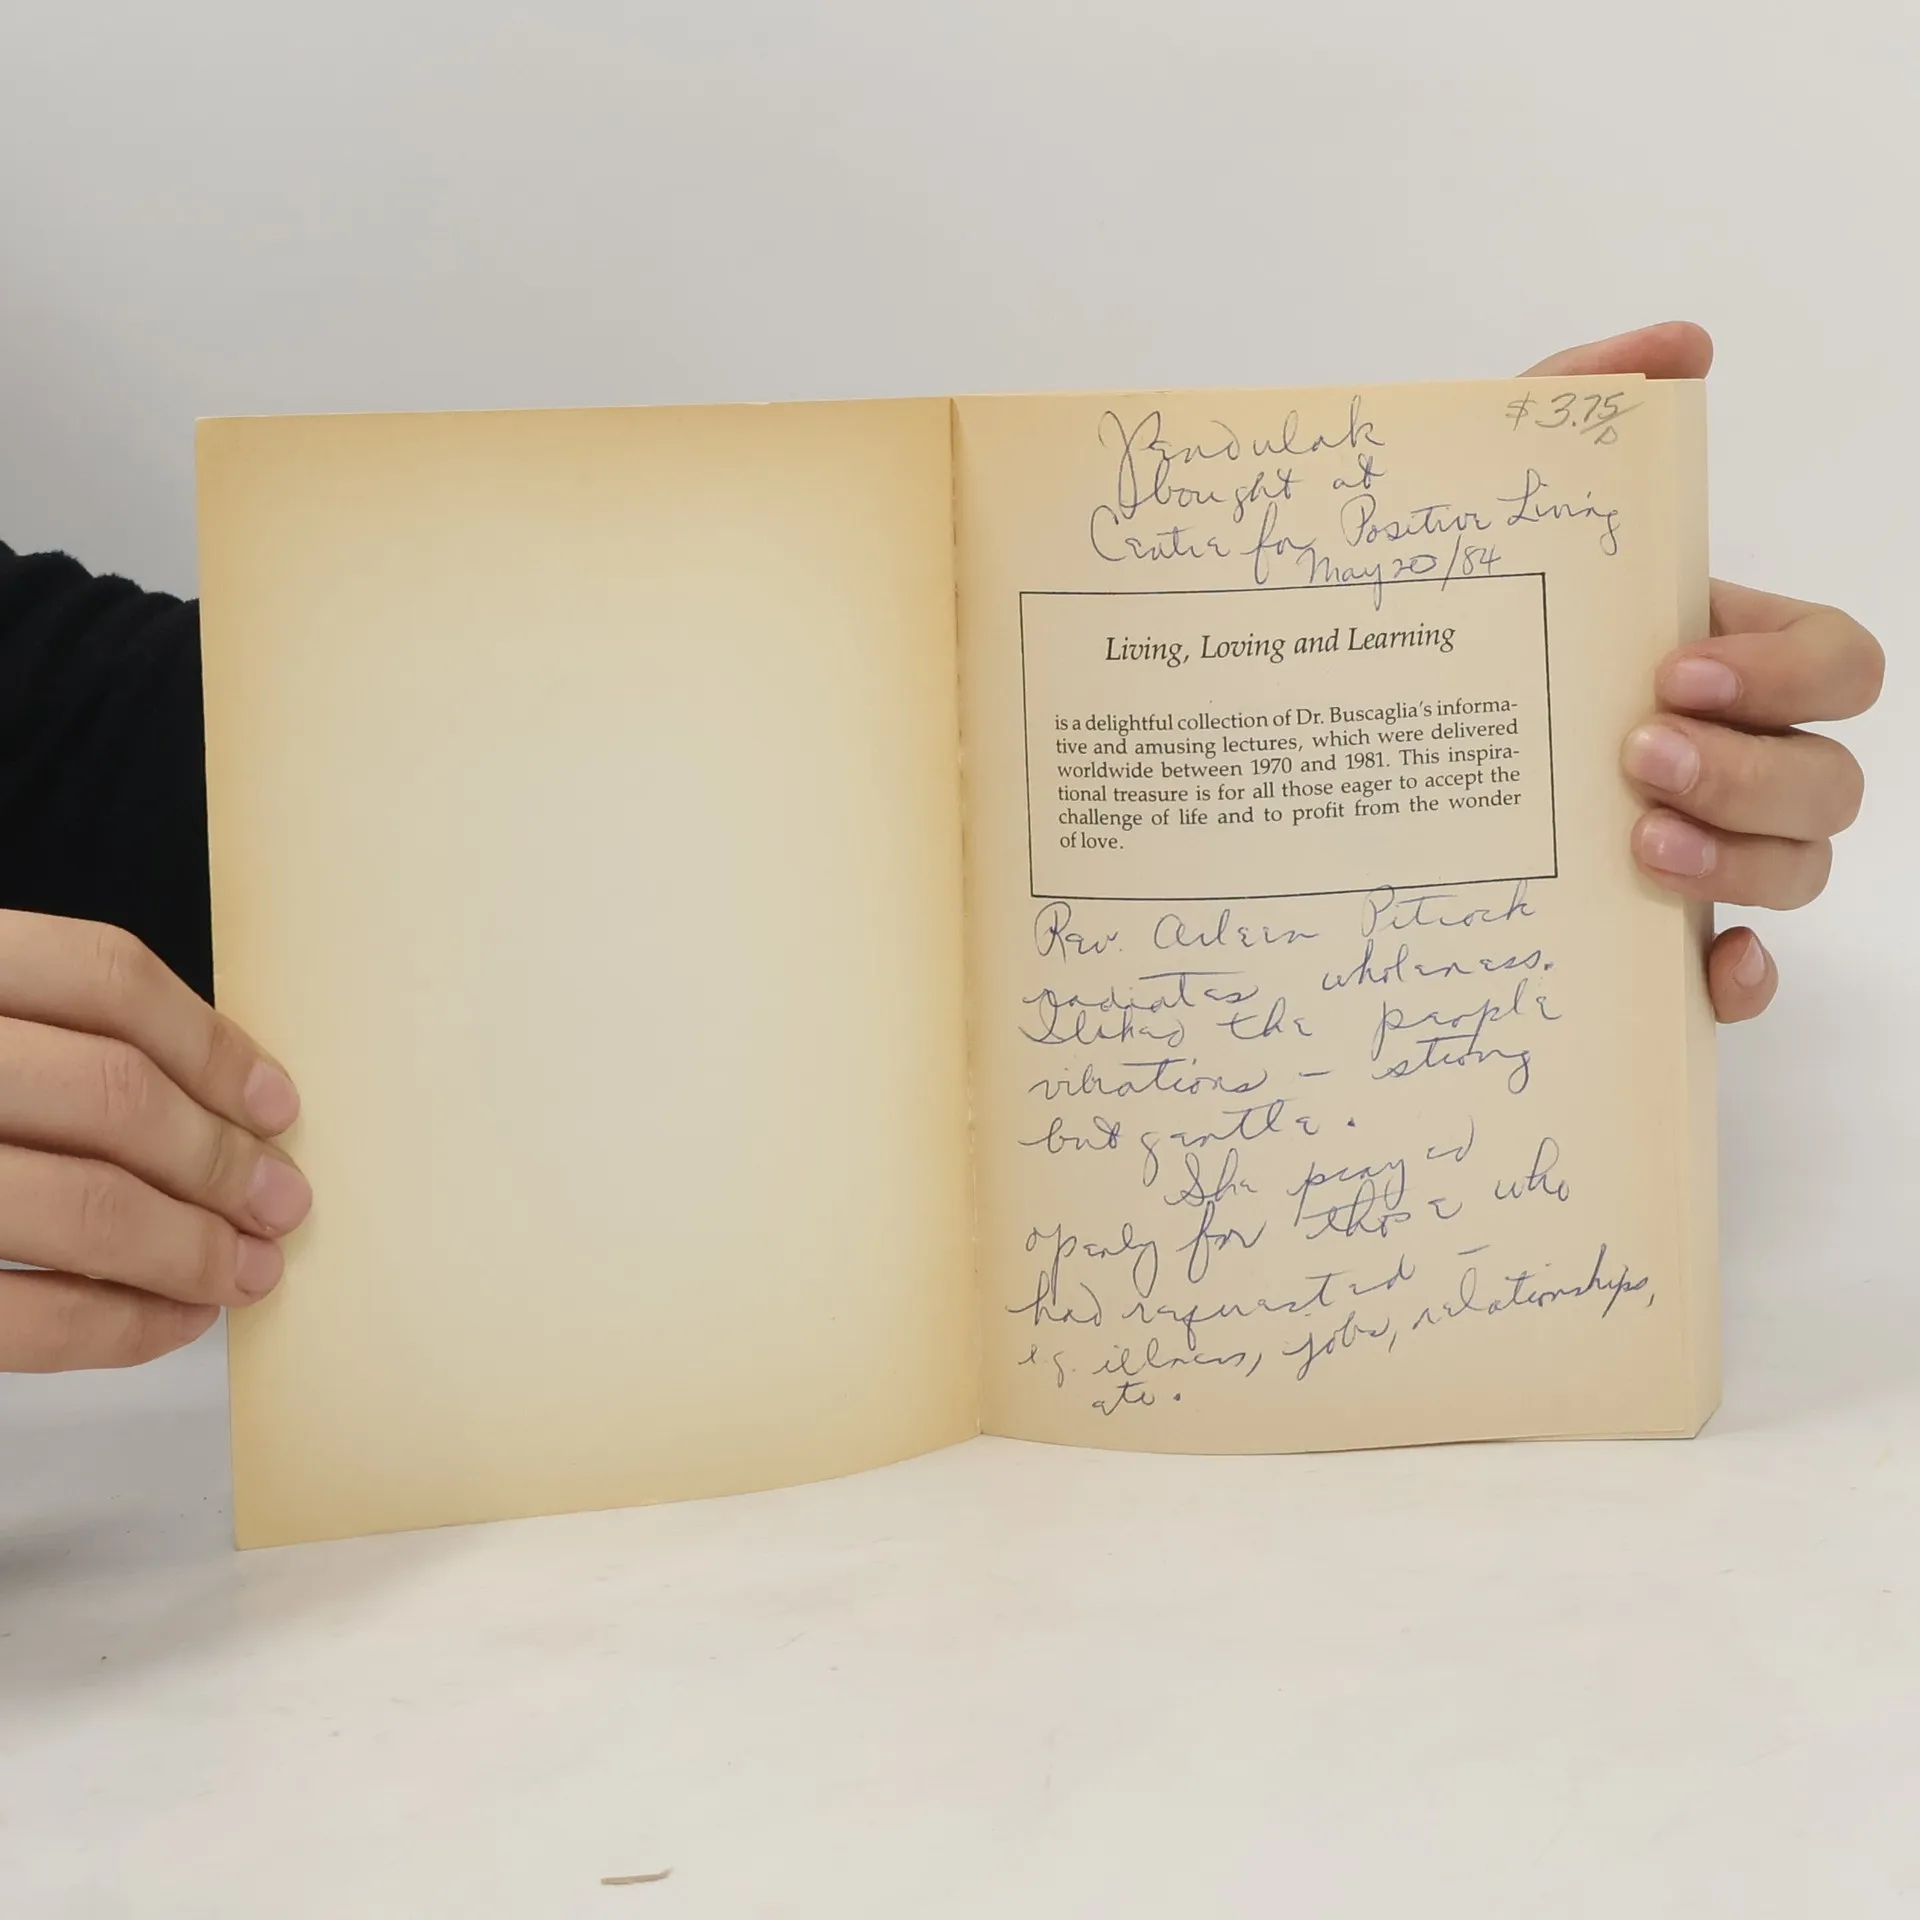 $3.75
Yendulak
bought at
Centre for Positive Living
May 20/84
Living, Loving and Learning
is a delightful collection of Dr. Buscaglia's informa-
tive and amusing lectures, which were delivered
worldwide between 1970 and 1981. This inspira-
tional treasure is for all those eager to accept the
challenge of life and to profit from the wonder
of love.
Rev. Arleen
radiates wholeness.
I liked the people
vibrations – strong
but gentle.
She prayed
openly for those who
had requested –
e.g. illness, jobs, relationships,
etc.